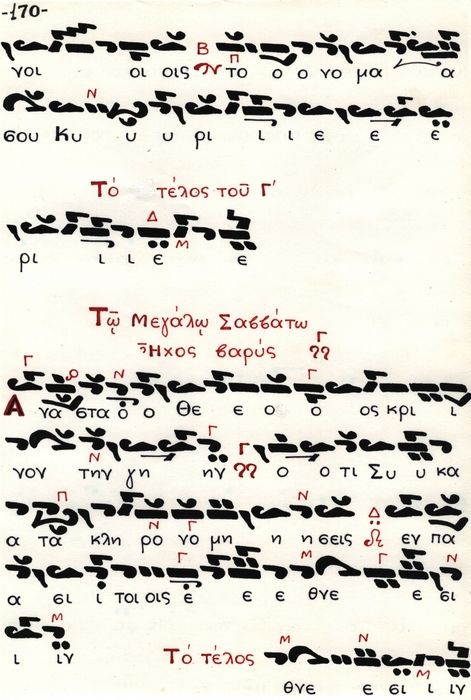 -170-
νοι οι οις Β το ο ο νο μα α
Π
Ν
σου Κυ υ υ ρι ι ι ε ε ε
Τό τέλος τοῦ Γ'
Δ
ρι ι ι ε Μ ε
Τῷ Μεγάλῳ Σαββάτω
Ἦχος βαρύς Γ
Γ Ν Γ
Α νά στα ο ο Θε ε ο ο ος κρι ι
Ν Γ Γ
νον την γη ην ο ο τι Συ υ κα
Π Ν Γ Ν Δ
α τα κλη ρο νο μη η η σεις εν πα
Γ Μ Γ Ν
α σι ι τοι οις ε ε ε θνε ε σι
Μ
ι ιν Τό τέλος Μ Ν
θνε ε σι ι ιν
Μ